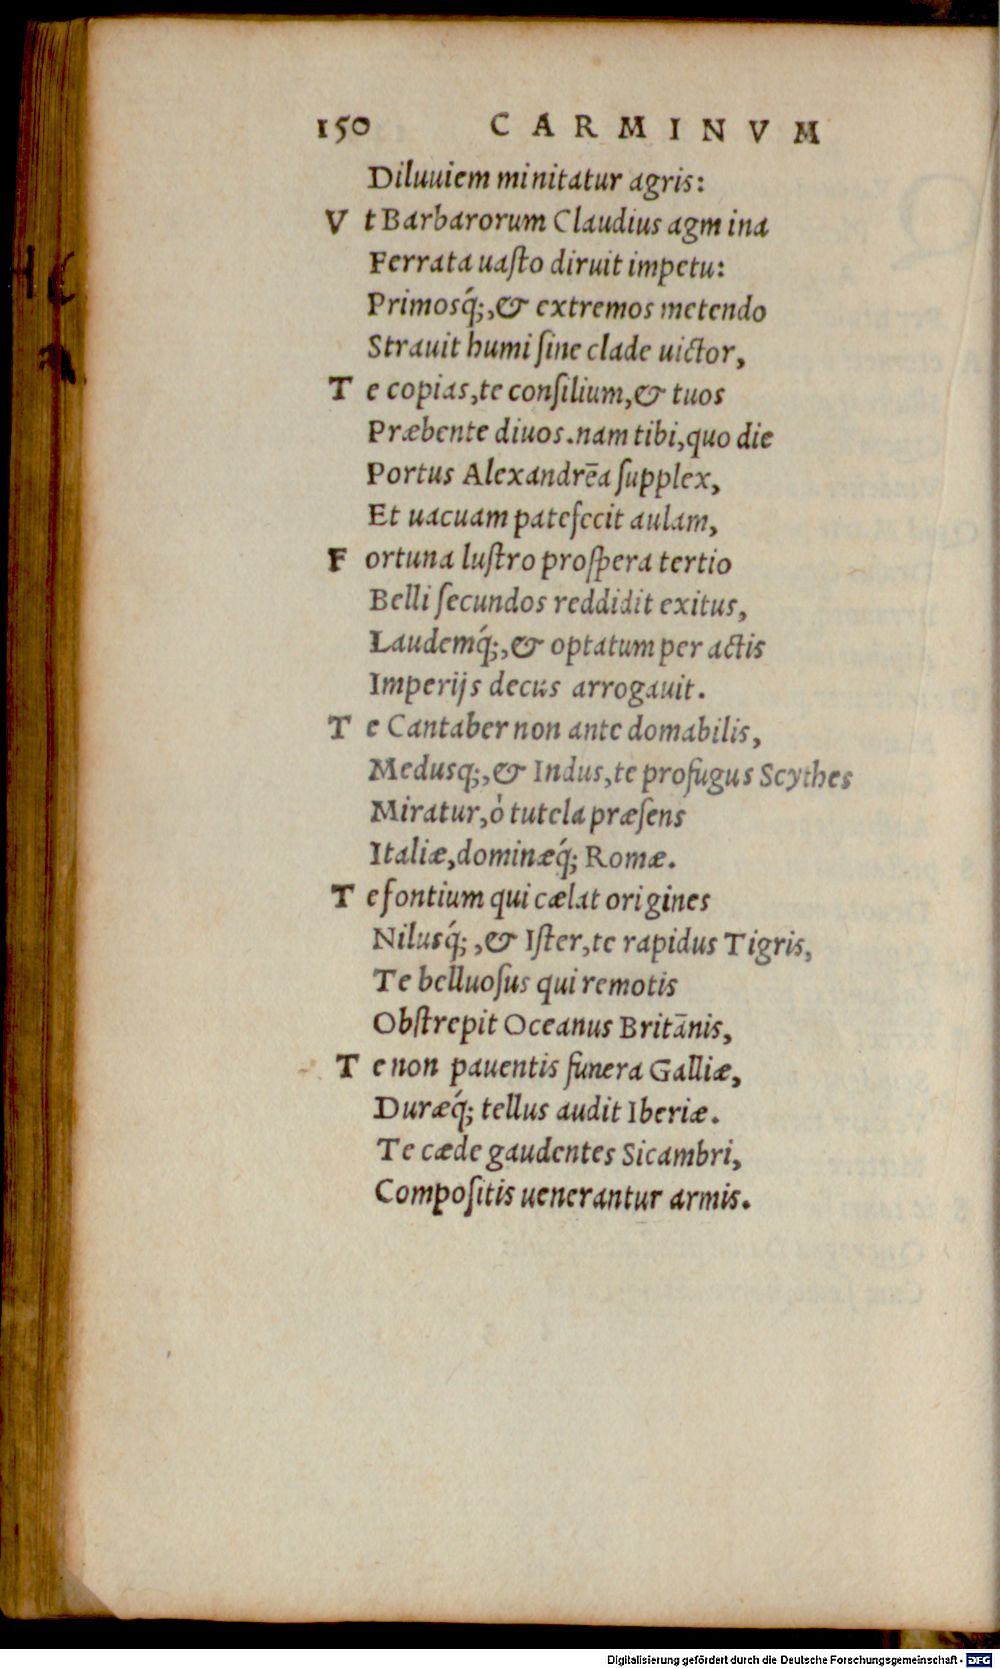 150 CARMINVM
Diluuiem minitatur agris:
Vt Barbarorum Claudius agmina
Ferrata uaſto diruit impetu:
Primosq́;,& extremos metendo
Strauit humi ſine clade uictor,
Te copias,te conſilium,& tuos
Præbente diuos.nam tibi,quo die
Portus Alexandrēa ſupplex,
Et uacuam patefecit aulam,
Fortuna luſtro proſpera tertio
Belli ſecundos reddidit exitus,
Laudemq́;,& optatum per actis
Imperijs decus arrogauit.
Te Cantaber non ante domabilis,
Medusq;,& Indus,te profugus Scythes
Miratur,ò tutela præſens
Italiæ,dominæq́; Romæ.
Te fontium qui cælat origines
Nilusq́; ,& Iſter,te rapidus Tigris,
Te belluoſus qui remotis
Obſtrepit Oceanus Britānis,
Te non pauentis funera Galliæ,
Duræq́; tellus audit Iberiæ.
Te cæde gaudentes Sicambri,
Compoſitis uenerantur armis.
Digitalisierung gefördert durch die Deutsche Forschungsgemeinschaft - DFG